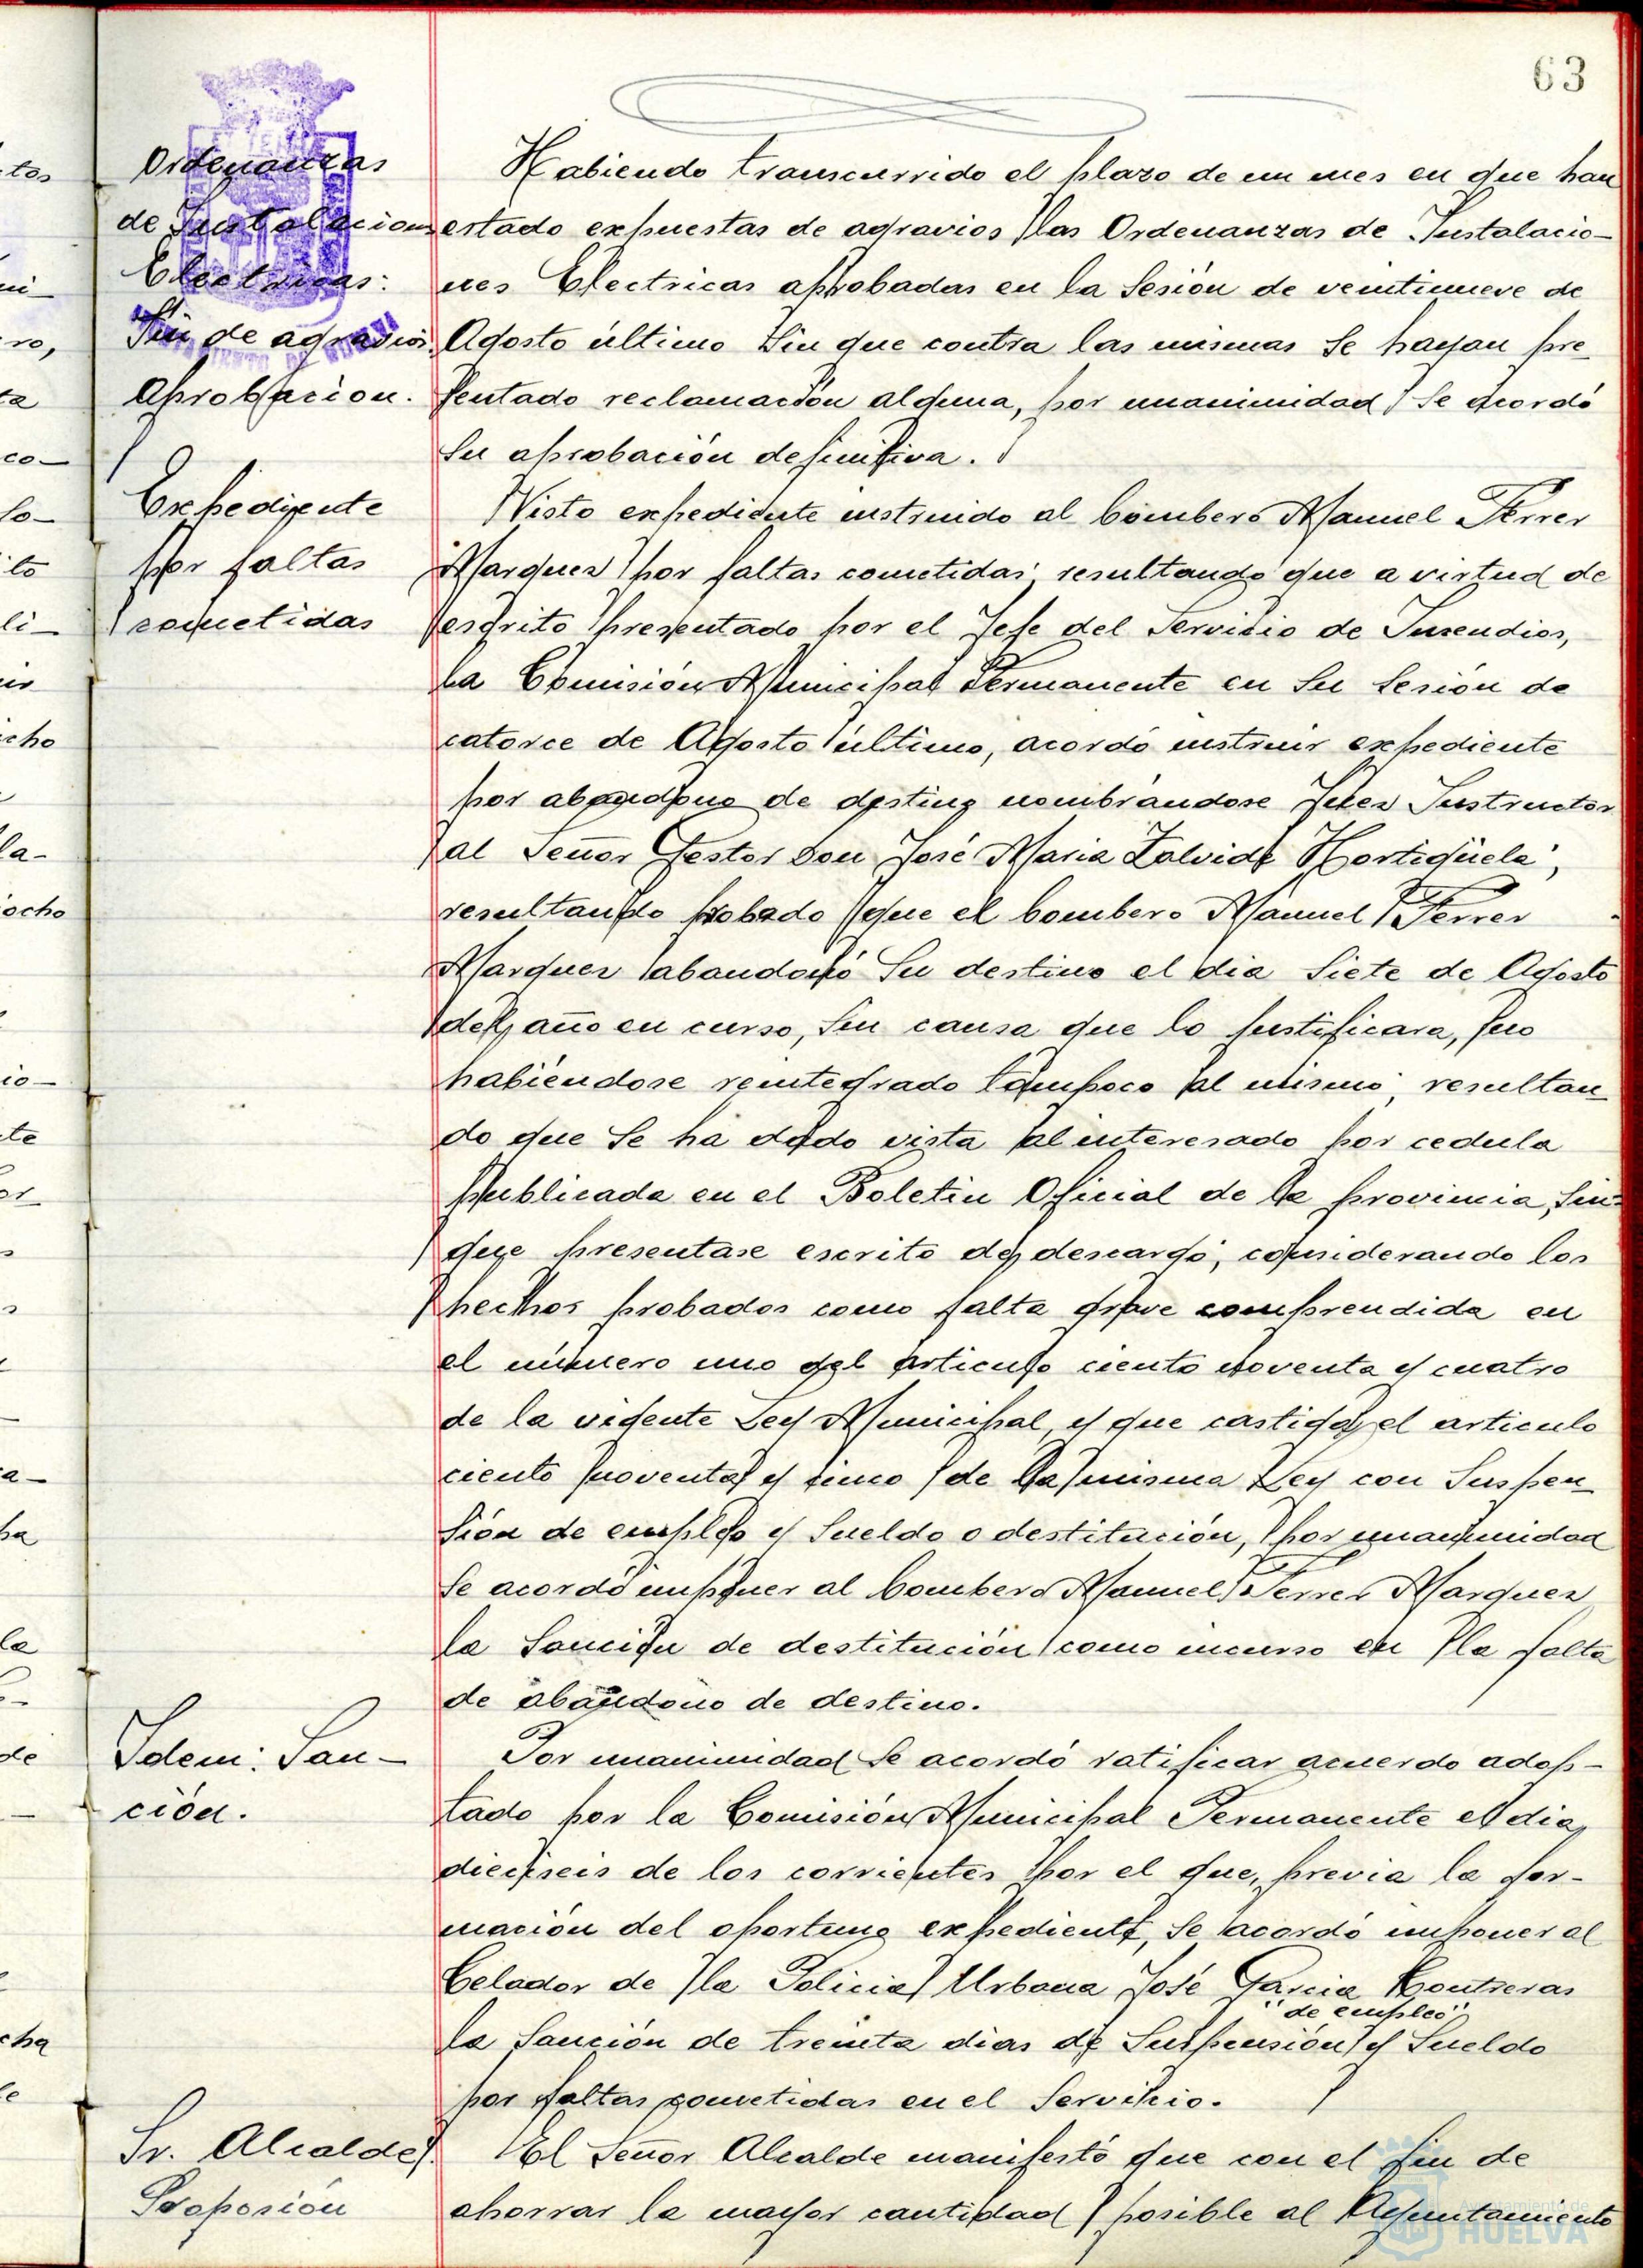 63
Ordenanzas
de Instalaciones
Electricas:
Fin de agravios.
Aprobacion.
Habiendo transcurrido el plazo de un mes en que han
estado expuestas de agravios las Ordenanzas de Instalacio-
nes Electricas aprobadas en la Sesión de veintinueve de
Agosto último sin que contra las mismas se hayan pre-
sentado reclamación alguna, por unanimidad se acordó
su aprobación definitiva.
Expediente
por faltas
cometidas
Visto expediente instruido al bombero Manuel Ferrer
Marquez por faltas cometidas; resultando que a virtud de
escrito presentado por el Jefe del Servicio de Incendios,
la Comisión Municipal Permanente en su Sesión de
catorce de Agosto último, acordó instruir expediente
por abandono de destino nombrándose Juez Instructor
al Señor Gestor Don José Maria Zalvide Hortigüela;
resultando probado que el bombero Manuel Ferrer
Marquez abandonó su destino el dia siete de Agosto
del año en curso, sin causa que lo justificara, no
habiéndose reintegrado tampoco al mismo; resultan-
do que se ha dado vista al interesado por cedula
publicada en el Boletin Oficial de la provincia, sin
que presentase escrito de descargo; considerando los
hechos probados como falta grave comprendida en
el número uno del articulo ciento noventa y cuatro
de la vigente Ley Municipal, y que castiga el articulo
ciento noventa y cinco de la misma Ley con suspen-
sión de empleo y sueldo o destitución, por unanimidad
se acordó imponer al bombero Manuel Ferrer Marquez
la Sanción de destitución como incurso en la falta
de abandono de destino.
Idem: San-
ción.
Por unanimidad se acordó ratificar acuerdo adop-
tado por la Comisión Municipal Permanente el dia
dieciseis de los corrientes por el que, previa la for-
mación del oportuno expediente, se acordó imponer al
Celador de la Policia Urbana José Garcia Contreras
"de empleo"
la Sanción de treinta dias de Suspensión y Sueldo
por faltas cometidas en el Servicio.
Sr. Alcalde
Proposión
El Señor Alcalde manifestó que con el fin de
ahorrar la mayor cantidad posible al Ayuntamiento
Ayuntamiento de
HUELVA